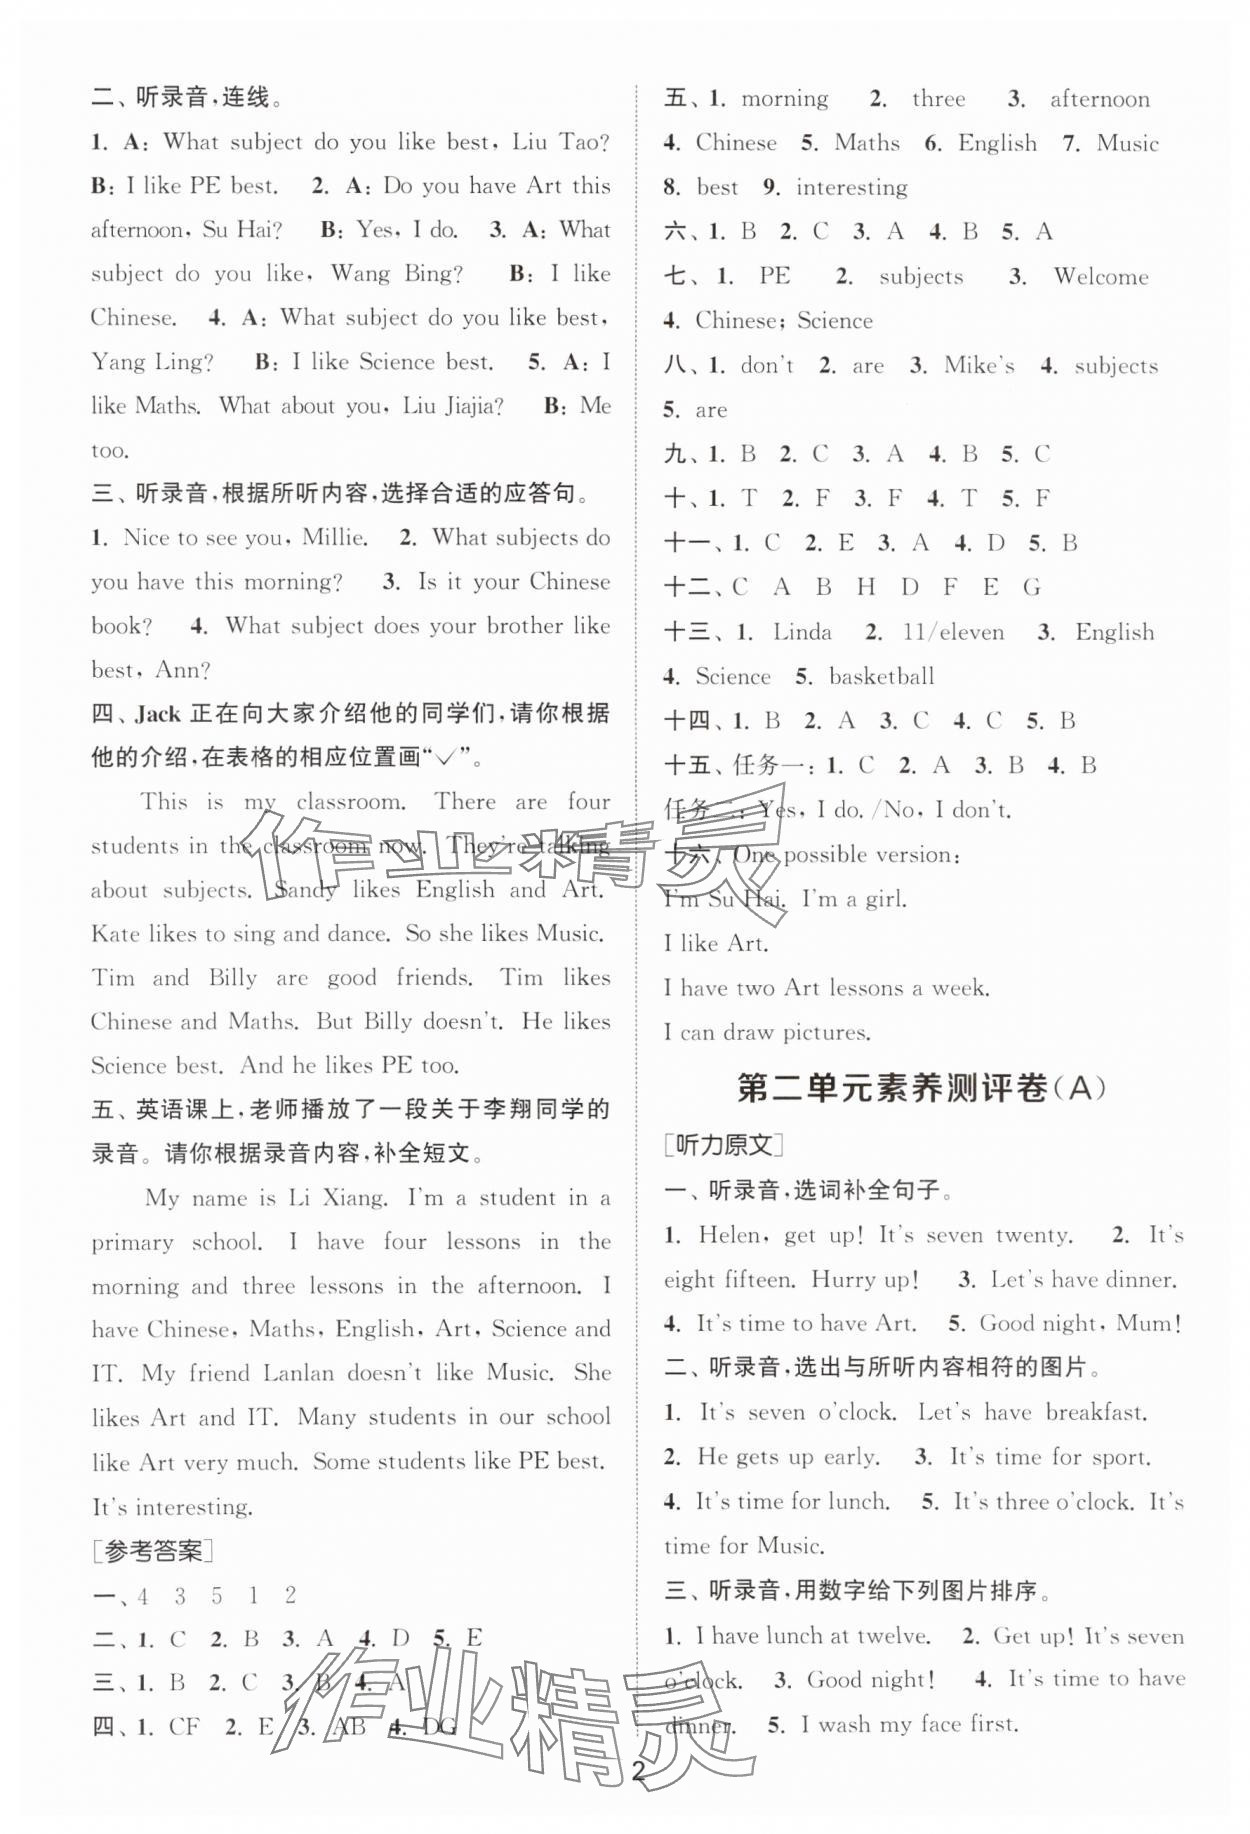 二、听录音,连线。
1. A: What subject do you like best, Liu Tao?
B: I like PE best. 2. A: Do you have Art this
afternoon, Su Hai? B: Yes, I do. 3. A: What
subject do you like, Wang Bing? B: I like
Chinese. 4. A: What subject do you like best,
Yang Ling? B: I like Science best. 5. A: I
like Maths. What about you, Liu Jiajia? B: Me
too.
三、听录音,根据所听内容,选择合适的应答句。
1. Nice to see you, Millie. 2. What subjects do
you have this morning? 3. Is it your Chinese
book? 4. What subject does your brother like
best, Ann?
四、Jack 正在向大家介绍他的同学们,请你根据
他的介绍,在表格的相应位置画“✓”。
This is my classroom. There are four
students in the classroom now. They're talking
about subjects. Sandy likes English and Art.
Kate likes to sing and dance. So she likes Music.
Tim and Billy are good friends. Tim likes
Chinese and Maths. But Billy doesn't. He likes
Science best. And he likes PE too.
五、英语课上,老师播放了一段关于李翔同学的
录音。请你根据录音内容,补全短文。
My name is Li Xiang. I'm a student in a
primary school. I have four lessons in the
morning and three lessons in the afternoon. I
have Chinese, Maths, English, Art, Science and
IT. My friend Lanlan doesn't like Music. She
likes Art and IT. Many students in our school
like Art very much. Some students like PE best.
It's interesting.
[参考答案]
一、4 3 5 1 2
二、1. C 2. B 3. A 4. D 5. E
三、1. B 2. C 3. B 4. A
四、1. CF 2. E 3. AB 4. DG
五、1. morning 2. three 3. afternoon
4. Chinese 5. Maths 6. English 7. Music
8. best 9. interesting
六、1. B 2. C 3. A 4. B 5. A
七、1. PE 2. subjects 3. Welcome
4. Chinese; Science
八、1. don't 2. are 3. Mike's 4. subjects
5. are
九、1. B 2. C 3. A 4. B 5. C
十、1. T 2. F 3. F 4. T 5. F
十一、1. C 2. E 3. A 4. D 5. B
十二、C A B H D F E G
十三、1. Linda 2. 11/eleven 3. English
4. Science 5. basketball
十四、1. B 2. A 3. C 4. C 5. B
十五、任务一:1. C 2. A 3. B 4. B
任务二:Yes, I do. /No, I don't.
十六、One possible version:
I'm Su Hai. I'm a girl.
I like Art.
I have two Art lessons a week.
I can draw pictures.
第二单元素养测评卷(A)
[听力原文]
一、听录音,选词补全句子。
1. Helen, get up! It's seven twenty. 2. It's
eight fifteen. Hurry up! 3. Let's have dinner.
4. It's time to have Art. 5. Good night, Mum!
二、听录音,选出与所听内容相符的图片。
1. It's seven o'clock. Let's have breakfast.
2. He gets up early. 3. It's time for sport.
4. It's time for lunch. 5. It's three o'clock. It's
time for Music.
三、听录音,用数字给下列图片排序。
1. I have lunch at twelve. 2. Get up! It's seven
o'clock. 3. Good night! 4. It's time to have
dinner. 5. I wash my face first.
2
作业精灵
作业精灵